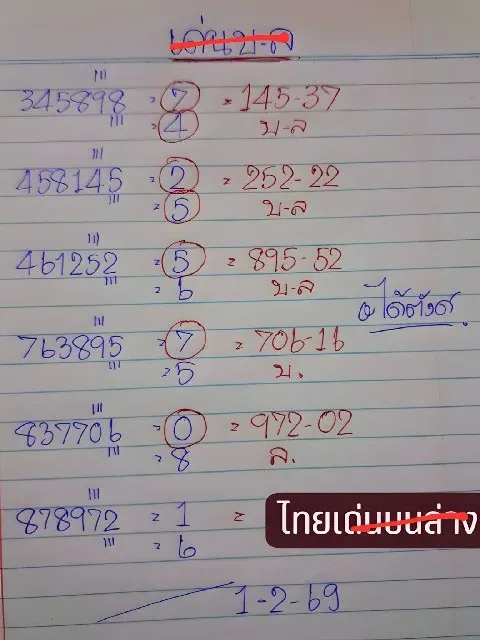 เด่นบ-ล
345898 = 7 = 145-37
= 4 บ-ล
458145 = 2 = 252-22
= 5 บ-ล
461252 = 5 = 895-52
= 6 บ-ล
763895 = 7 = 706-16
= 5 บ.
837706 = 0 = 972-02
= 8 ล.
878972 = 1 = ไทยเด่นบนล่าง
= 6
1-2-69